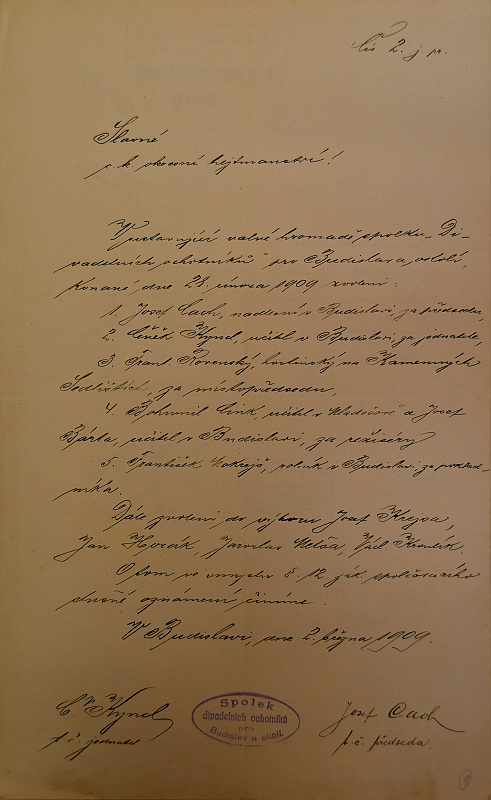 Čís. 2. j. pr.
Slavné
c. k. okresní hejtmanství!
V ustavující valné hromadě spolku „Di-
vadelních ochotníků" pro Budislav a okolí,
konané dne 28. února 1909 zvoleni:
1. Josef Cach, nadlesní v Budislavi, za předsedu,
2. Čeněk Kyncl, učitel v Budislavi, za jednatele,
3. Frant. Rovenský, hostinský na Kamenných
Sedlištích, za místopředsedu,
4. Bohumil učitel v a Josef
Bárta, učitel v Budislavi, za režiséry
5. František rolník v Budislavi, za poklad-
níka.
Dále zvoleni do výboru Josef Krejsa,
Jan Jaroslav
O tom ve smyslu §. 12. zák. spolčovacího
slušné oznámení činíme.
V Budislavi, dne 2. března 1909.
Č. Kyncl
t. č. jednatel
Spolek
divadelních ochotníků
pro
Budislav a okolí.
Josef Cach
t. č. předseda.